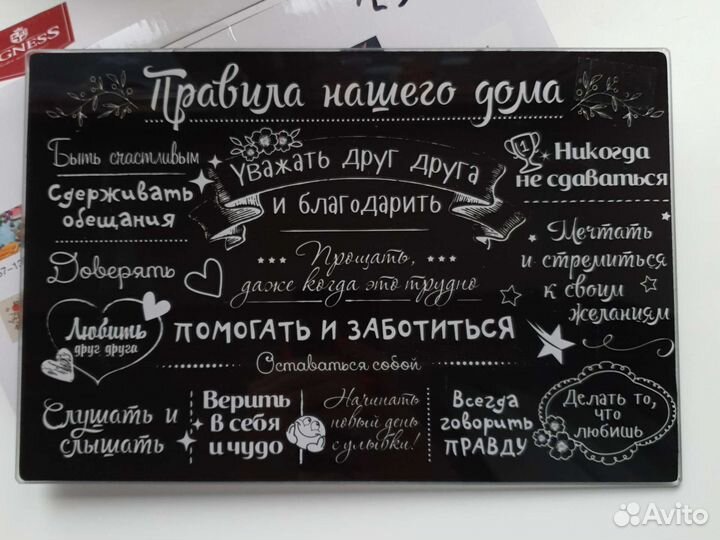 GNESS
Правила нашего дома
Быть счастливым
Сдерживать
обещания
Доверять
Уважать друг друга
и благодарить
1
Никогда
не сдаваться
Прощать,
даже когда это трудно
Мечтать
и стремиться
к своим
желаниям
Любить
друг друга
Помогать и заботиться
Оставаться собой
Слушать и
слышать
Верить
в себя
и чудо
Начинать
новый день
с улыбки!
Всегда
говорить
правду
Делать то,
что
любишь
Avito